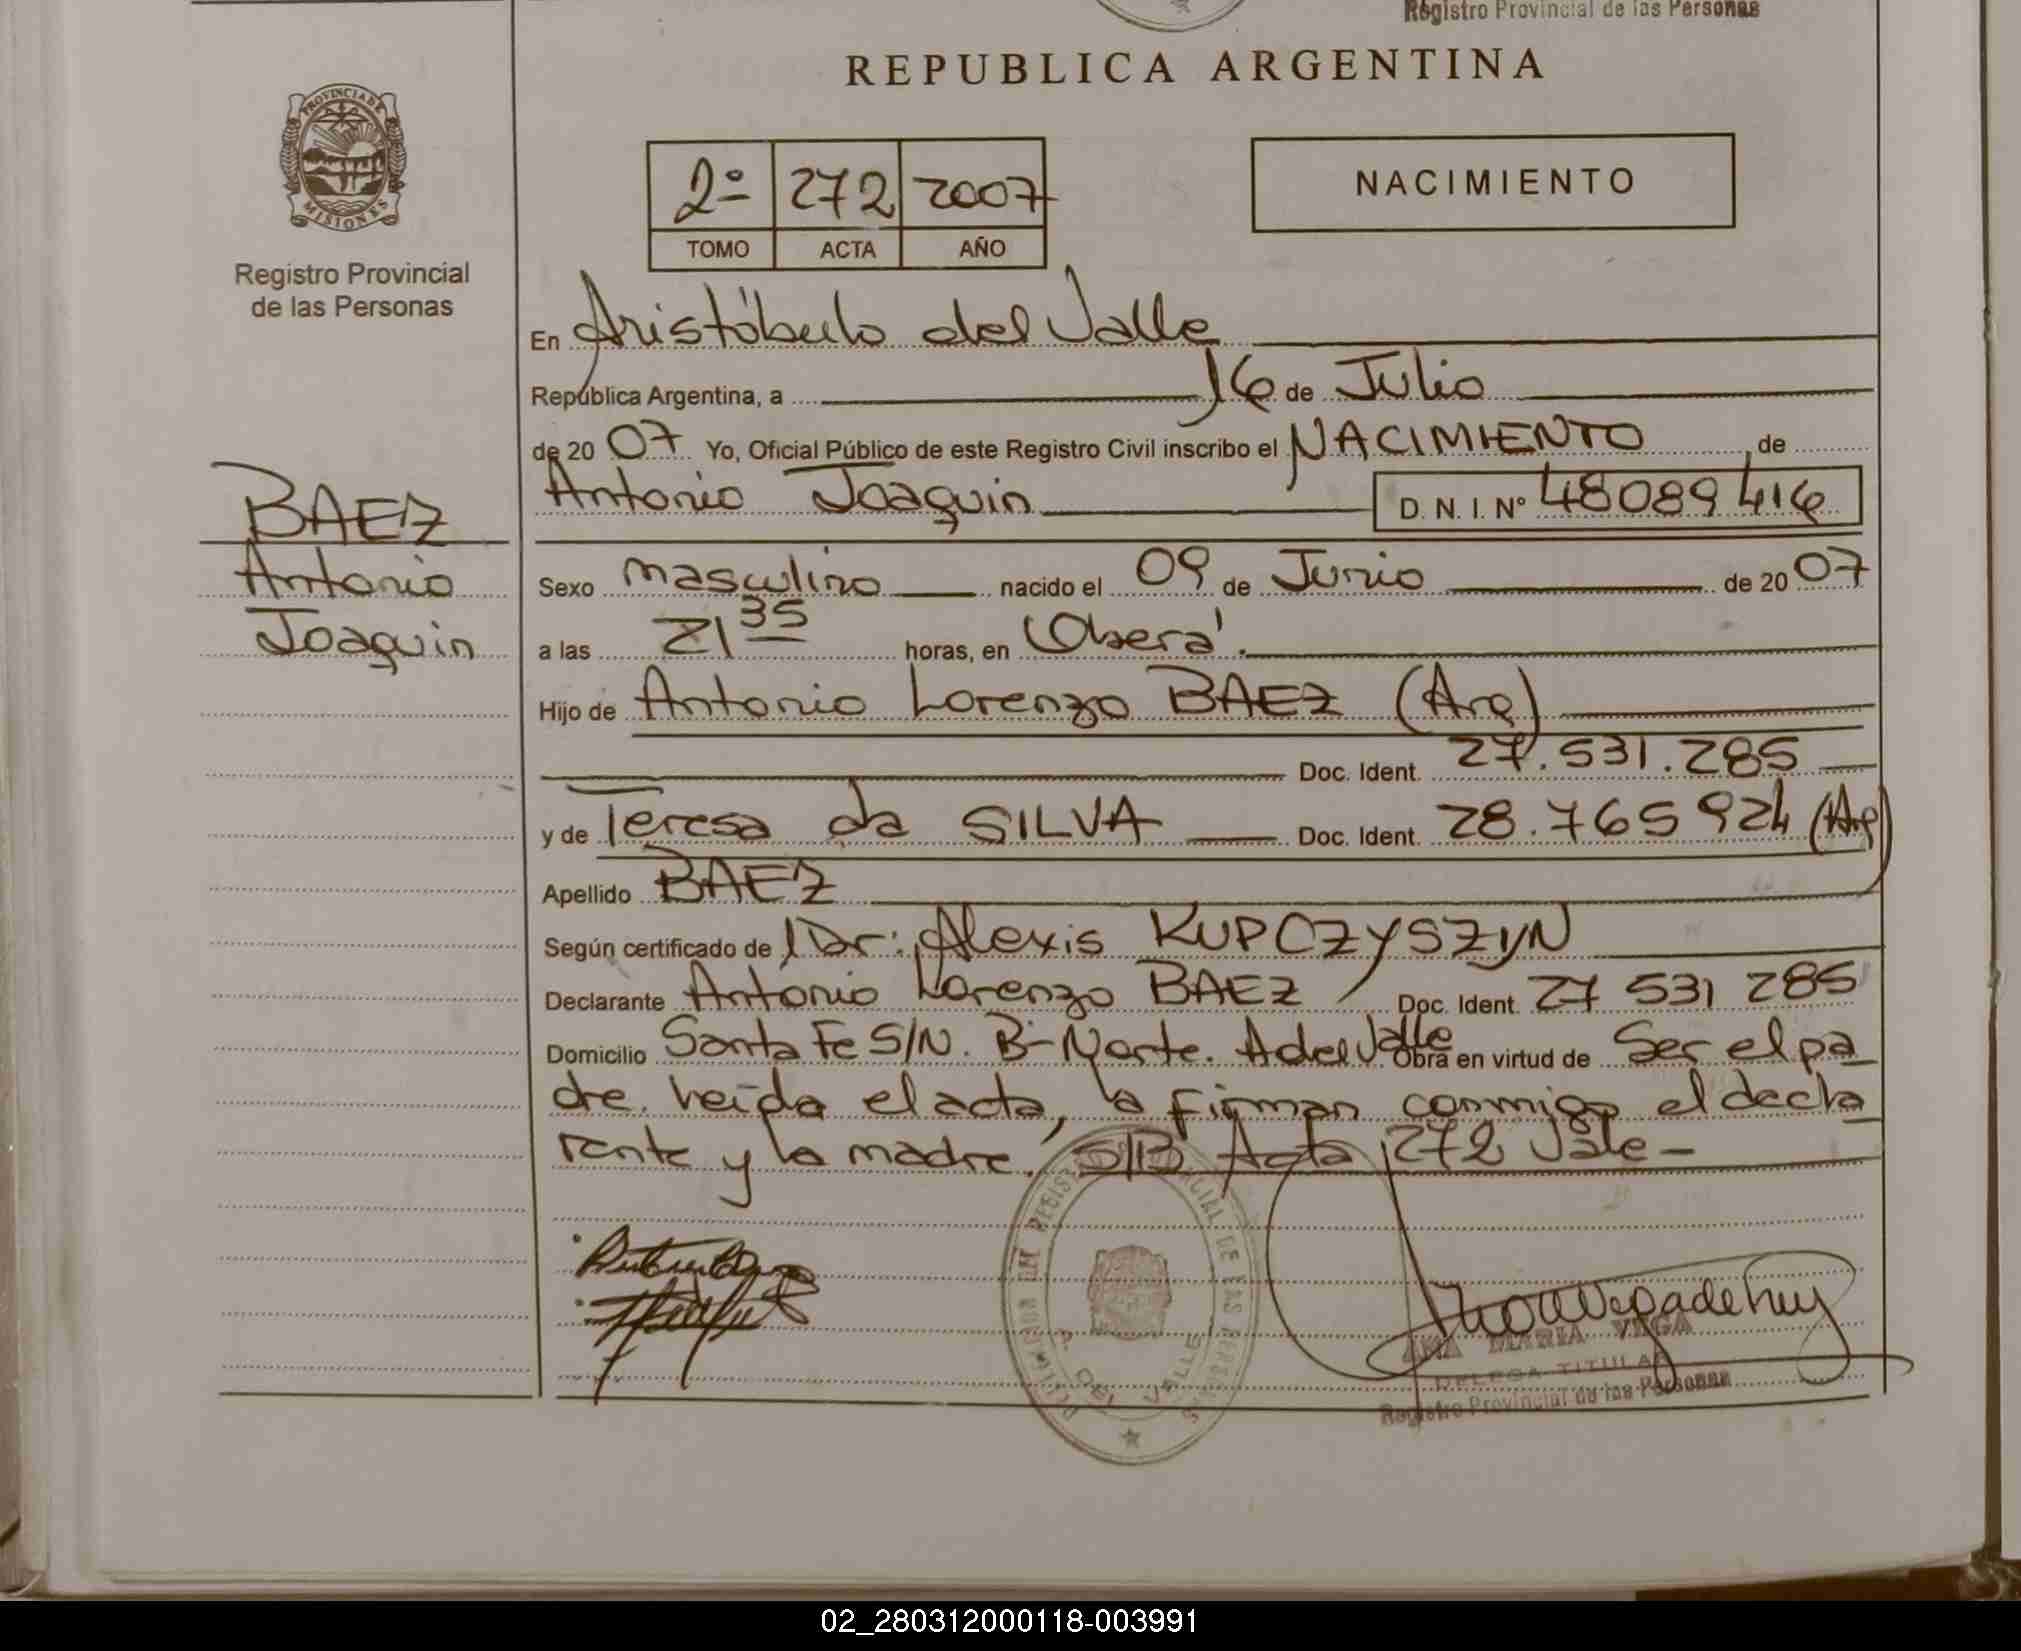 Registro Provincial de las Personas
REPUBLICA ARGENTINA
PROVINCIA DE
MISIONES
Registro Provincial
de las Personas
2º 272 2007
TOMO ACTA AÑO
NACIMIENTO
En Aristóbulo del Valle
República Argentina, a 16 de Julio
de 20 07 Yo, Oficial Público de este Registro Civil inscribo el NACIMIENTO, de
Antonio Joaquin D. N. I. Nº 48089416
BAEZ
Antonio
Joaquin
Sexo masculino nacido el 09 de Junio de 20 07
a las 21 35 horas, en Oberá.
Hijo de Antonio Lorenzo BAEZ (Arg)
Doc. Ident. 27.531.285
y de Teresa da SILVA Doc. Ident. 28.765924 (Arg)
Apellido BAEZ
Según certificado de Dr: Alexis KUPCZYSZYN
Declarante Antonio Lorenzo BAEZ Doc. Ident. 27 531 285
Domicilio Santa Fe S/N. B-Norte. A del Valle Obra en virtud de Ser el pa
dre. Leída el acta, la firman conmigo el decla
rante y la madre. S/B Acta 272 Vale-
A. DEL VALLE
ANA MARIA VEGA
DELEGA TITULAR
Registro Provincial de las Personas
02_280312000118-003991